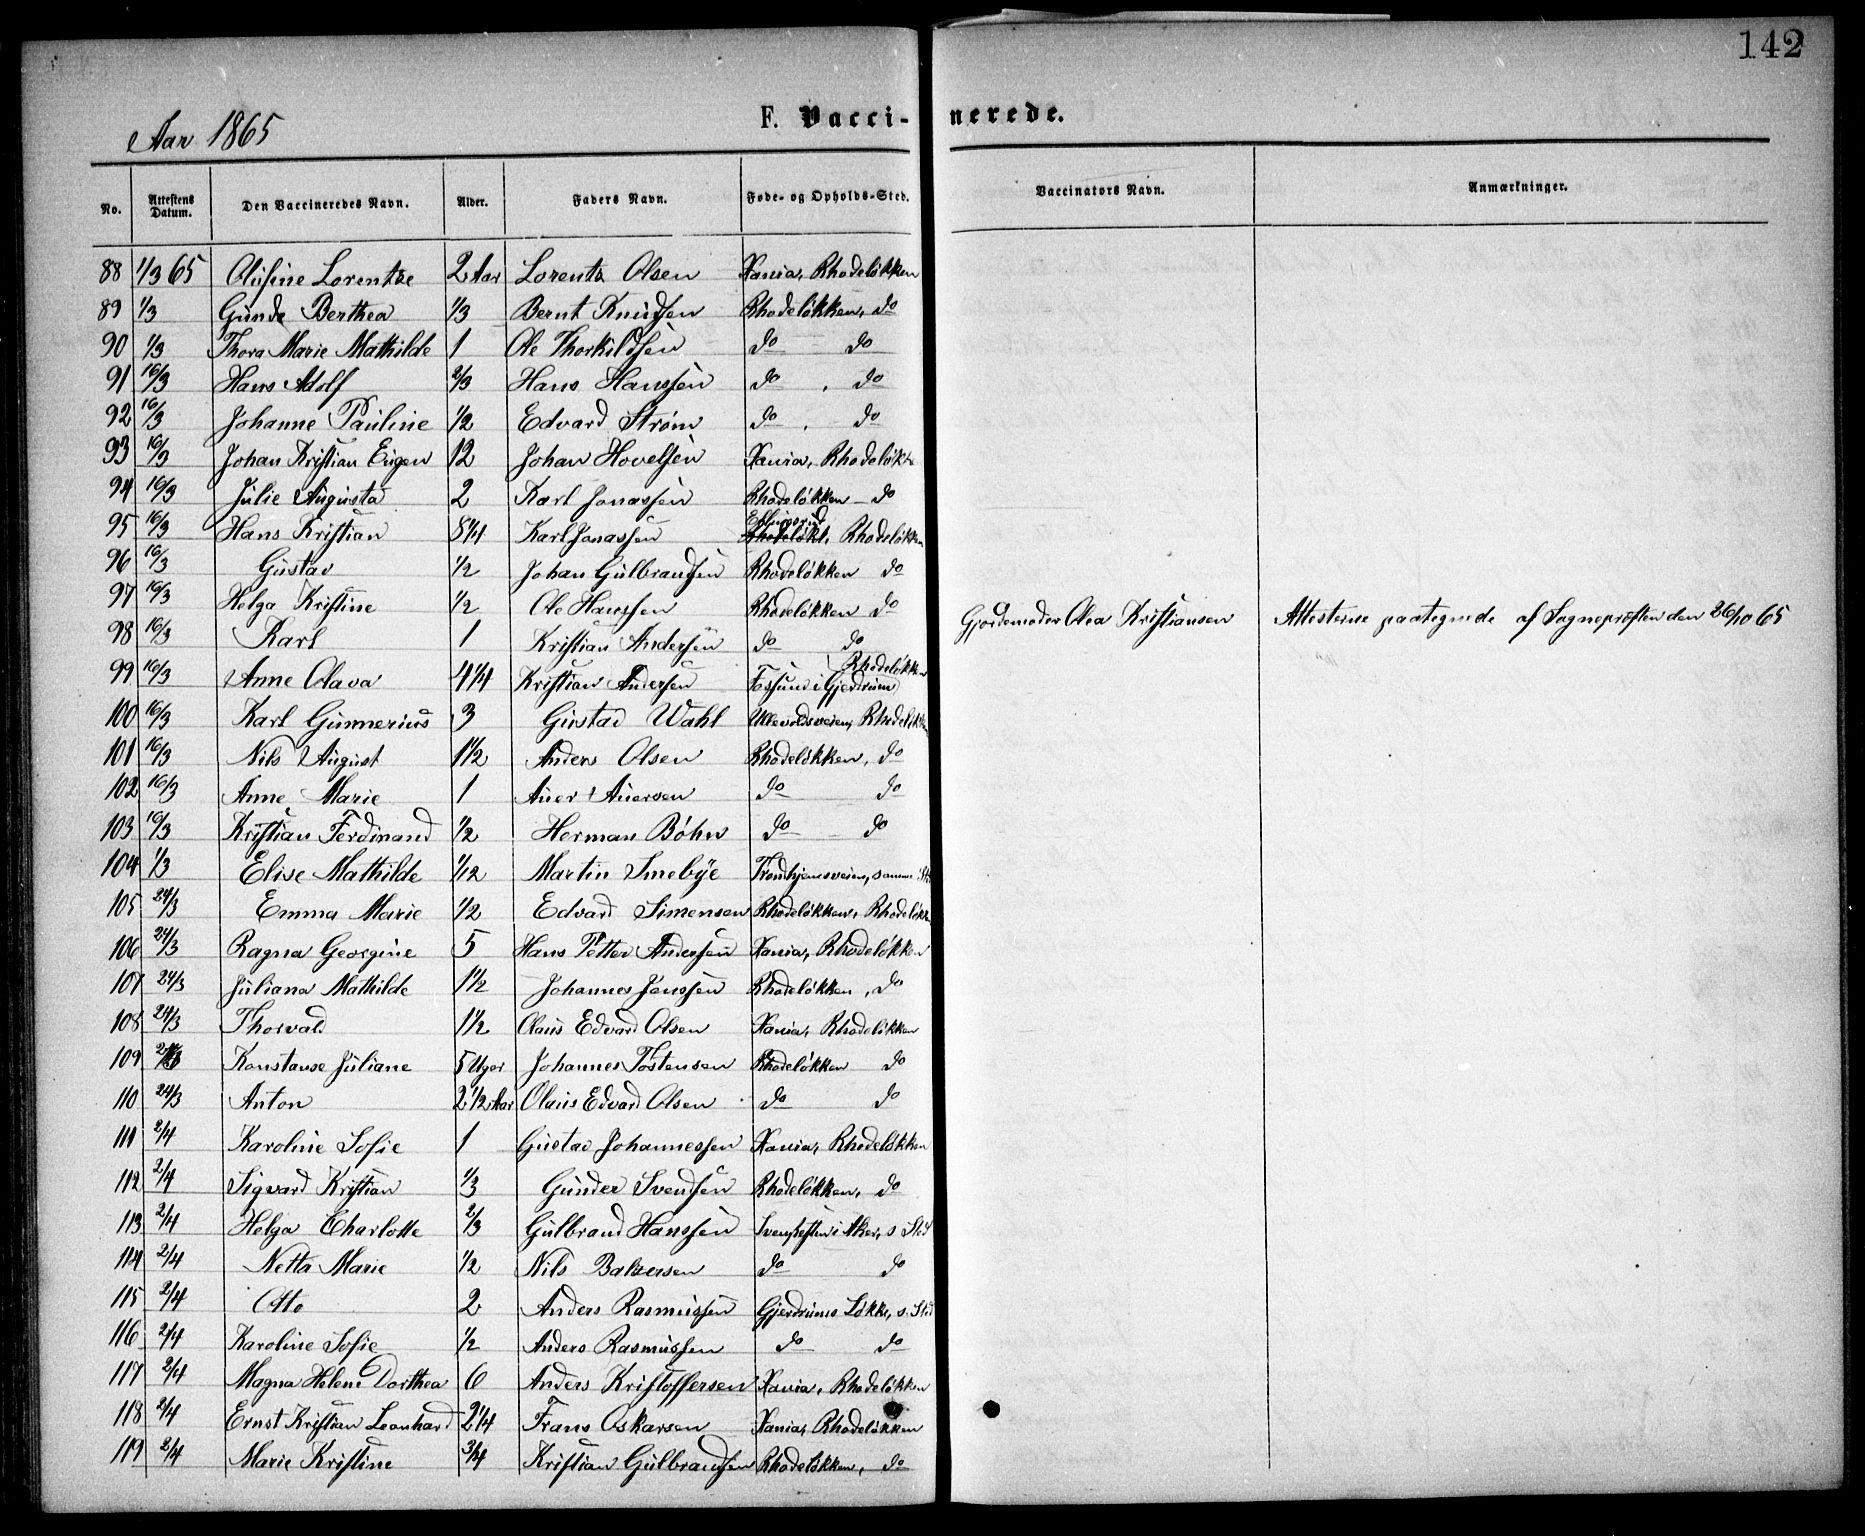 142
Aar 1865
F. Vaccinerede.
No. Attestens Datum. Den Vaccineredes Navn. Alder. Faders Navn. Føde- og Opholds-Sted. Vaccinators Navn. Anmærkninger.
88 1/3 65 Olufine Lorentze 2 Aar Lorents Olsen Xania, Rhodeløkken
89 1/3 Gunda Berthea 1/3 Bernt Knudsen Rhodeløkken, do
90 1/3 Thora Marie Mathilde 1 Ole Thorkildsen do do
91 16/3 Hans Adolf 2/3 Hans Hanssen do, do
92 16/3 Johanne Pauline 1/2 Edvard Strøm do, do
93 16/3 Johan Kristian Eugen 12 Johan Hovelsen Xania, Rhodeløkk
94 16/3 Julie Augusta 2 Karl Jonassen Rhodeløkken do
95 16/3 Hans Kristian 8 1/4 Karl Jonassen Rhodeløkk, Rhodeløkken
96 16/3 Gustav 1/2 Johan Gulbrandsen Rhodeløkken do
97 16/3 Helga Kristine 1/2 Ole Hanssen Rhodeløkken do Gjordemoder Olea Kristiansen Attesterne paategnede af Sogneprøsten den 26/10 65
98 16/3 Karl 1 Kristian Andersen do do
99 16/3 Anne Olava 4 1/4 Kristian Andersen Fossum i Gjerdrum, Rhodeløkken
100 16/3 Karl Gunnerius 3 Gustav Wahl Ullevoldsveien, Rhodeløkken
101 16/3 Nils August 1 1/2 Anders Olsen Rhodeløkken, do
102 16/3 Anne Marie 1 Auer Auersen do do
103 16/3 Kristian Ferdinand 1/2 Herman Bøhn do do
104 1/3 Elise Mathilde 1/12 Martin Smebye Trondhjemsveien, samme St
105 24/3 Emma Marie 1/2 Edvard Simensen Rhodeløkken, Rhodeløkken
106 24/3 Ragna Georgine 5 Hans Petter Andersen Xania, Rhodeløkken
107 24/3 Juliana Mathilde 1 1/2 Johannes Jenssen Rhodeløkken, do
108 24/3 Thorvald 1 1/2 Olaus Edvard Olsen Xania, Rhodeløkken
109 Konstanse Juliane 5 Uger Johannes Tostensen Rhodeløkken do
110 24/3 Anton 2 1/2 Aar Olaus Edvard Olsen do do
111 2/4 Karoline Sofie 1 Gustav Johannessen Xania, Rhodeløkken
112 2/4 Sigvard Kristian 1/3 Gunder Svendsen Rhodeløkken, do
113 2/4 Helga Charlotte 2/3 Gulbrand Hanssen i Aker, s Sted
114 2/4 Netta Marie 1/2 Nils Balzersen do do
115 2/4 Otto 2 Anders Rasmussen Gjerdrums Løkke, s. Sted
116 2/4 Karoline Sofie 1/2 Anders Rasmussen do do
117 2/4 Magna Helene Dorthea 6 Anders Kristoffersen Xania, Rhodeløkken
118 2/4 Ernst Kristian Leonhard 2 1/4 Frans Oskarsen Xania, Rhodeløkken
119 2/4 Marie Kristine 3/4 Kristian Gulbrandsen Rhodeløkken, do